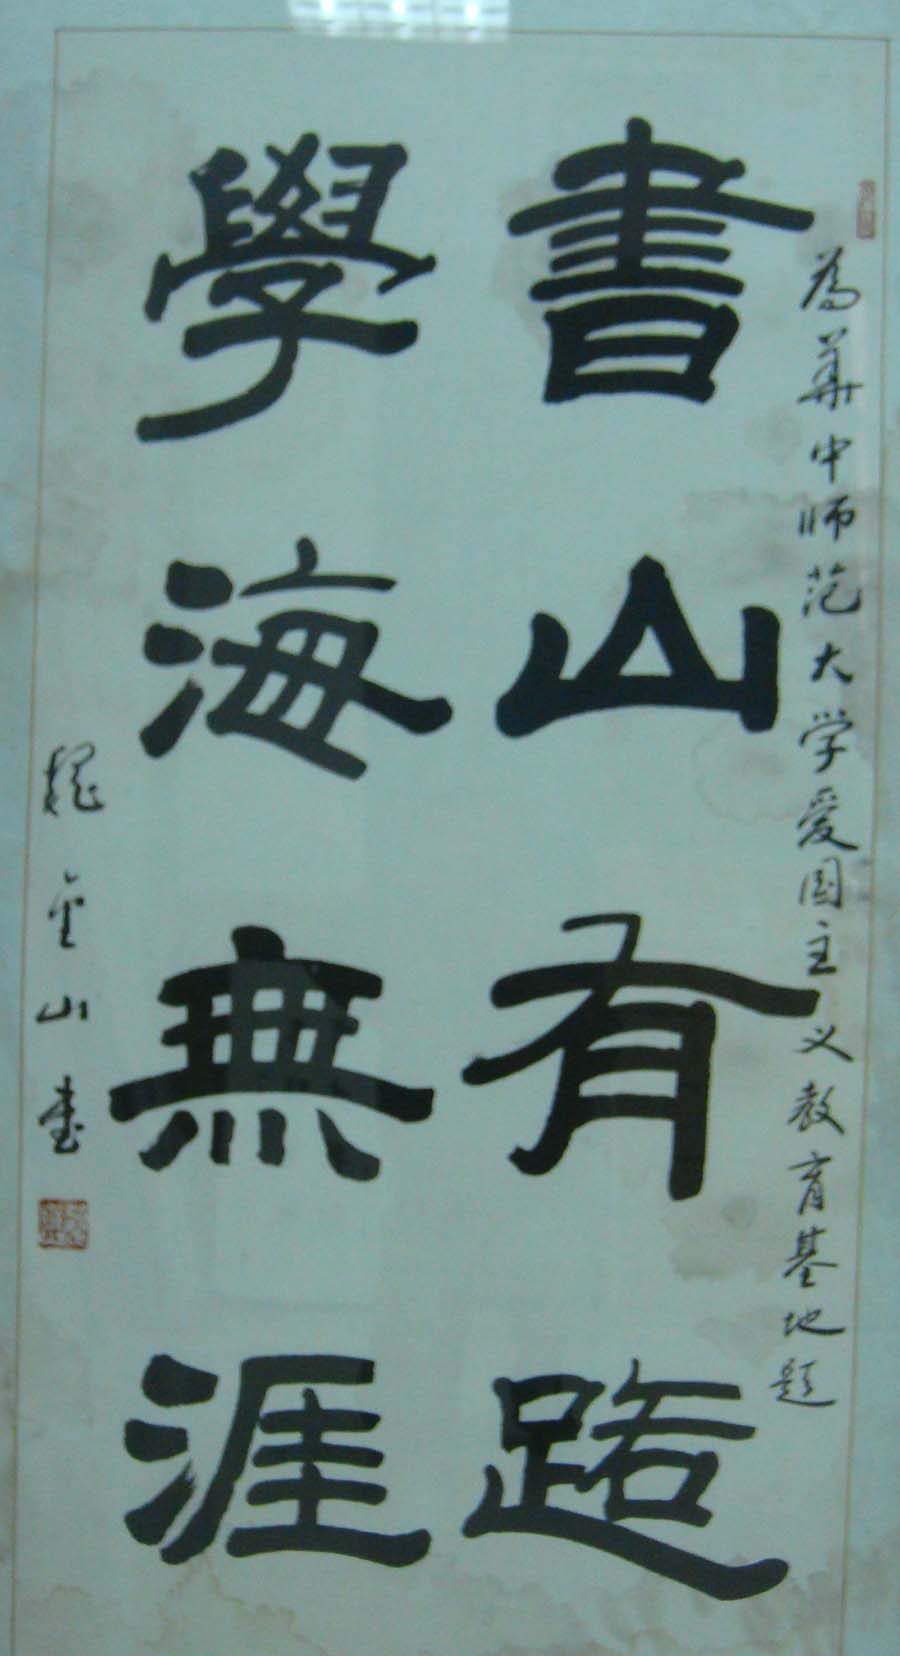 為華中师范大学爱国主义教育基地题
書山有路
學海無涯
魏金山書